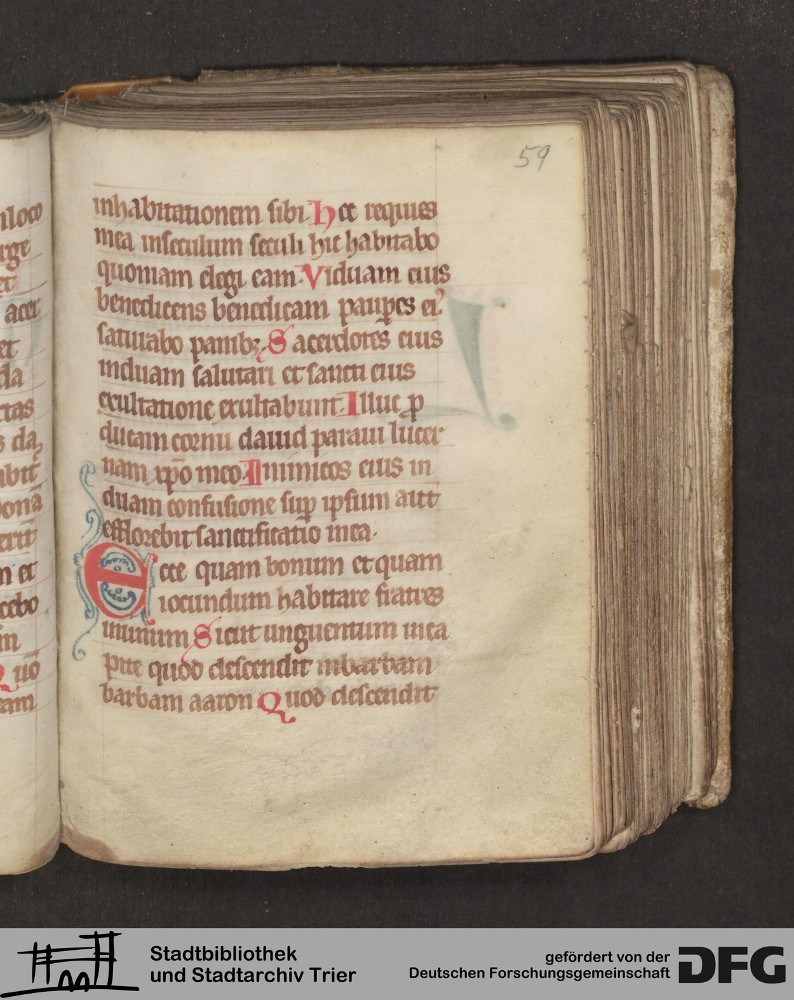 nloco
rge
et
acer
et
da
ctas
s da
ibit
bona
erit
n et
cebo
m
Quo
eam
59
inhabitationem sibi. Hec requies
mea inseculum seculi hic habitabo
quoniam elegi eam. Viduam eius
benedicens benedicam paup̱es eiꝰ
saturabo panibꝫ Sacerdotes eius
induam salutari et sancti eius
exultatione exultabunt. Illuc ꝓ
ducam cornu dauid paraui lucer
nam xp̄o meo. Inimicos eius in
duam confusione sup̱ ipsum autē
efflorebit sanctificatio mea.
Ecce quam bonum et quam
iocundum habitare fratres
inunum Sicut unguentum inca
pite quod descendit inbarbam
barbam aaron Quod descendit
Stadtbibliothek
und Stadtarchiv Trier
gefördert von der
Deutschen Forschungsgemeinschaft
DFG